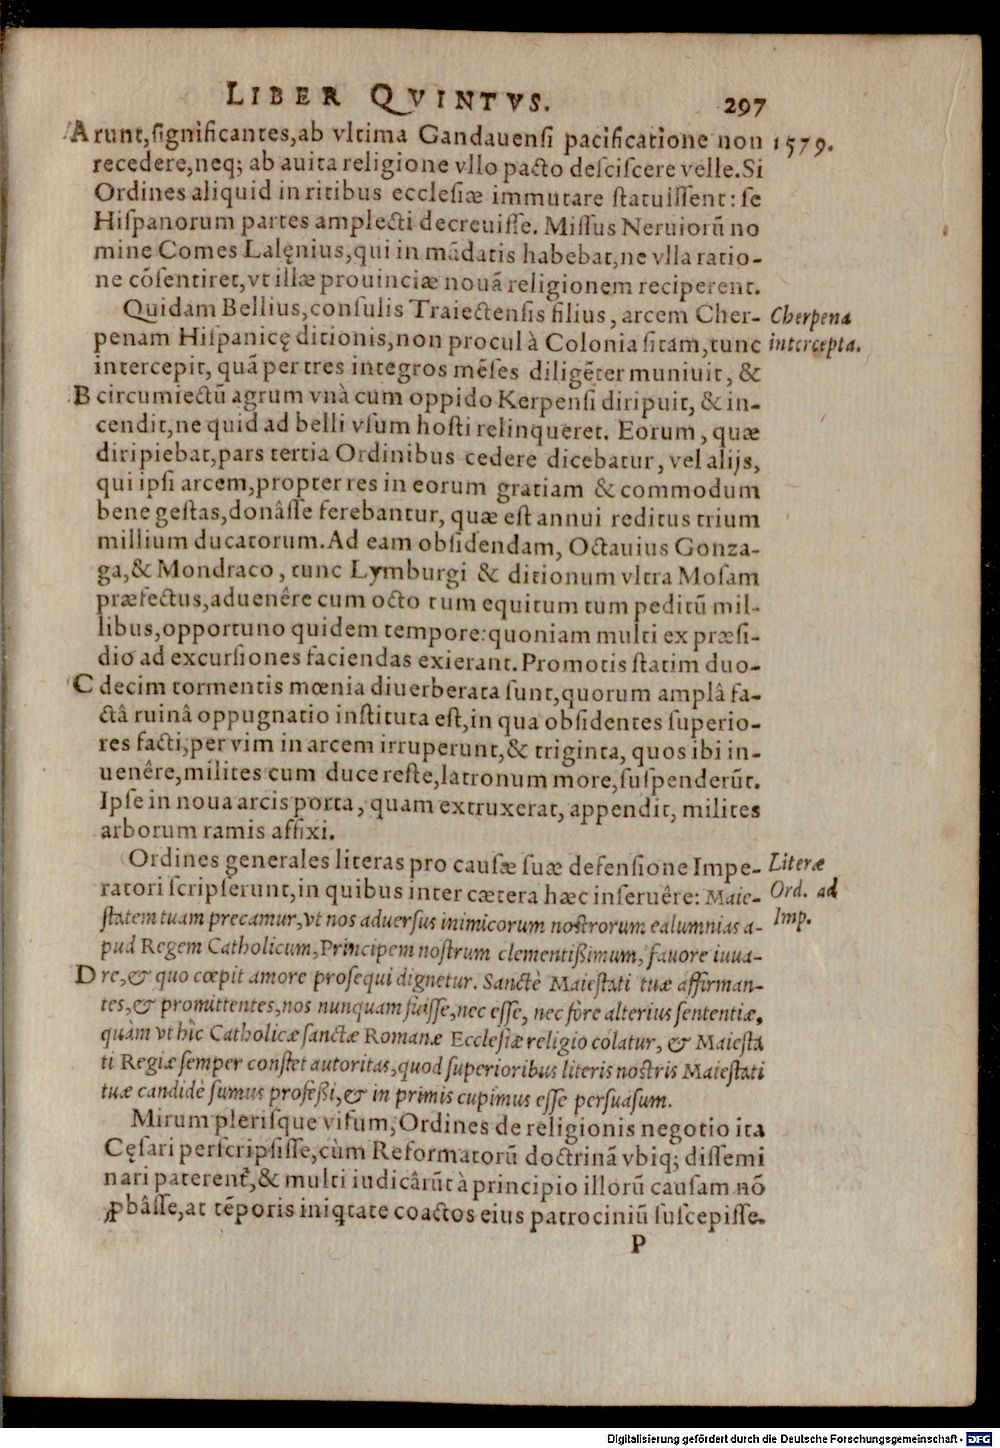 LIBER QVINTVS. 297
A runt,ſignificantes,ab vltima Gandauenſi pacificatione non 1579.
recedere,neq; ab auita religione vllo pacto deſciſcere velle.Si
Ordines aliquid in ritibus eccleſiæ immutare ſtatuiſſent: ſe
Hiſpanorum partes amplecti decreuiſſe. Miſſus Neruiorū no
mine Comes Lalęnius,qui in mādatis habebat,ne vlla ratio-
ne cōſentiret,vt illæ prouinciæ nouā religionem reciperent.
Quidam Bellius,conſulis Traiectenſis filius, arcem Cher- Cherpena
penam Hiſpanicę ditionis,non procul à Colonia ſitam,tunc intercepta.
intercepit, quā per tres integros mēſes diligēter muniuit, &
B circumiectū agrum vnà cum oppido Kerpenſi diripuit, & in-
cendit,ne quid ad belli vſum hoſti relinqueret. Eorum, quæ
diripiebat,pars tertia Ordinibus cedere dicebatur, vel alijs,
qui ipſi arcem,propter res in eorum gratiam & commodum
bene geſtas,donâſſe ferebantur, quæ eſt annui reditus trium
millium ducatorum.Ad eam obſidendam, Octauius Gonza-
ga,& Mondraco, tunc Lymburgi & ditionum vltra Moſam
præfectus,aduenêre cum octo tum equitum tum peditū mil-
libus,opportuno quidem tempore:quoniam multi ex præſi-
dio ad excurſiones faciendas exierant.Promotis ſtatim duo-
C decim tormentis mœnia diuerberata ſunt,quorum amplâ fa-
ctâ ruinâ oppugnatio inſtituta eſt,in qua obſidentes ſuperio-
res facti,per vim in arcem irruperunt,& triginta, quos ibi in-
uenêre,milites cum duce reſte,latronum more,ſuſpenderūt.
Ipſe in noua arcis porta, quam extruxerat, appendit, milites
arborum ramis affixi.
Ordines generales literas pro cauſæ ſuæ defenſione Impe- Literæ
ratori ſcripſerunt,in quibus inter cætera hæc inſeruêre: Maie- Ord. ad
ſtatem tuam precamur,vt nos aduerſus inimicorum noſtrorum calumnias a- Imp.
pud Regem Catholicum,Principem noſtrum clementißimum, fauore iuua-
D re,& quo cœpit amore proſequi dignetur. Sanctè Maieſtati tuæ affirman-
tes,& promittentes,nos nunquam fuiſſe,nec eſſe, nec fore alterius ſententiæ,
quàm vt hîc Catholicæ ſanctæ Romanæ Eccleſiæ religio colatur, & Maieſta
ti Regiæ ſemper conſtet autoritas,quod ſuperioribus literis noſtris Maieſtati
tuæ candidè ſumus profeßi,& in primis cupimus eſſe perſuaſum.
Mirum pleriſque viſum, Ordines de religionis negotio ita
Cęſari perſcripſiſſe,cùm Reformatorū doctrinā vbiq; diſſemi
nari paterent᷑,& multi iudicârūt à principio illorū cauſam nō
ꝓbâſſe,at tēporis iniq̃tate coactos eius patrociniū ſuſcepiſſe.
P
Digitalisierung gefördert durch die Deutsche Forschungsgemeinschaft - DFG